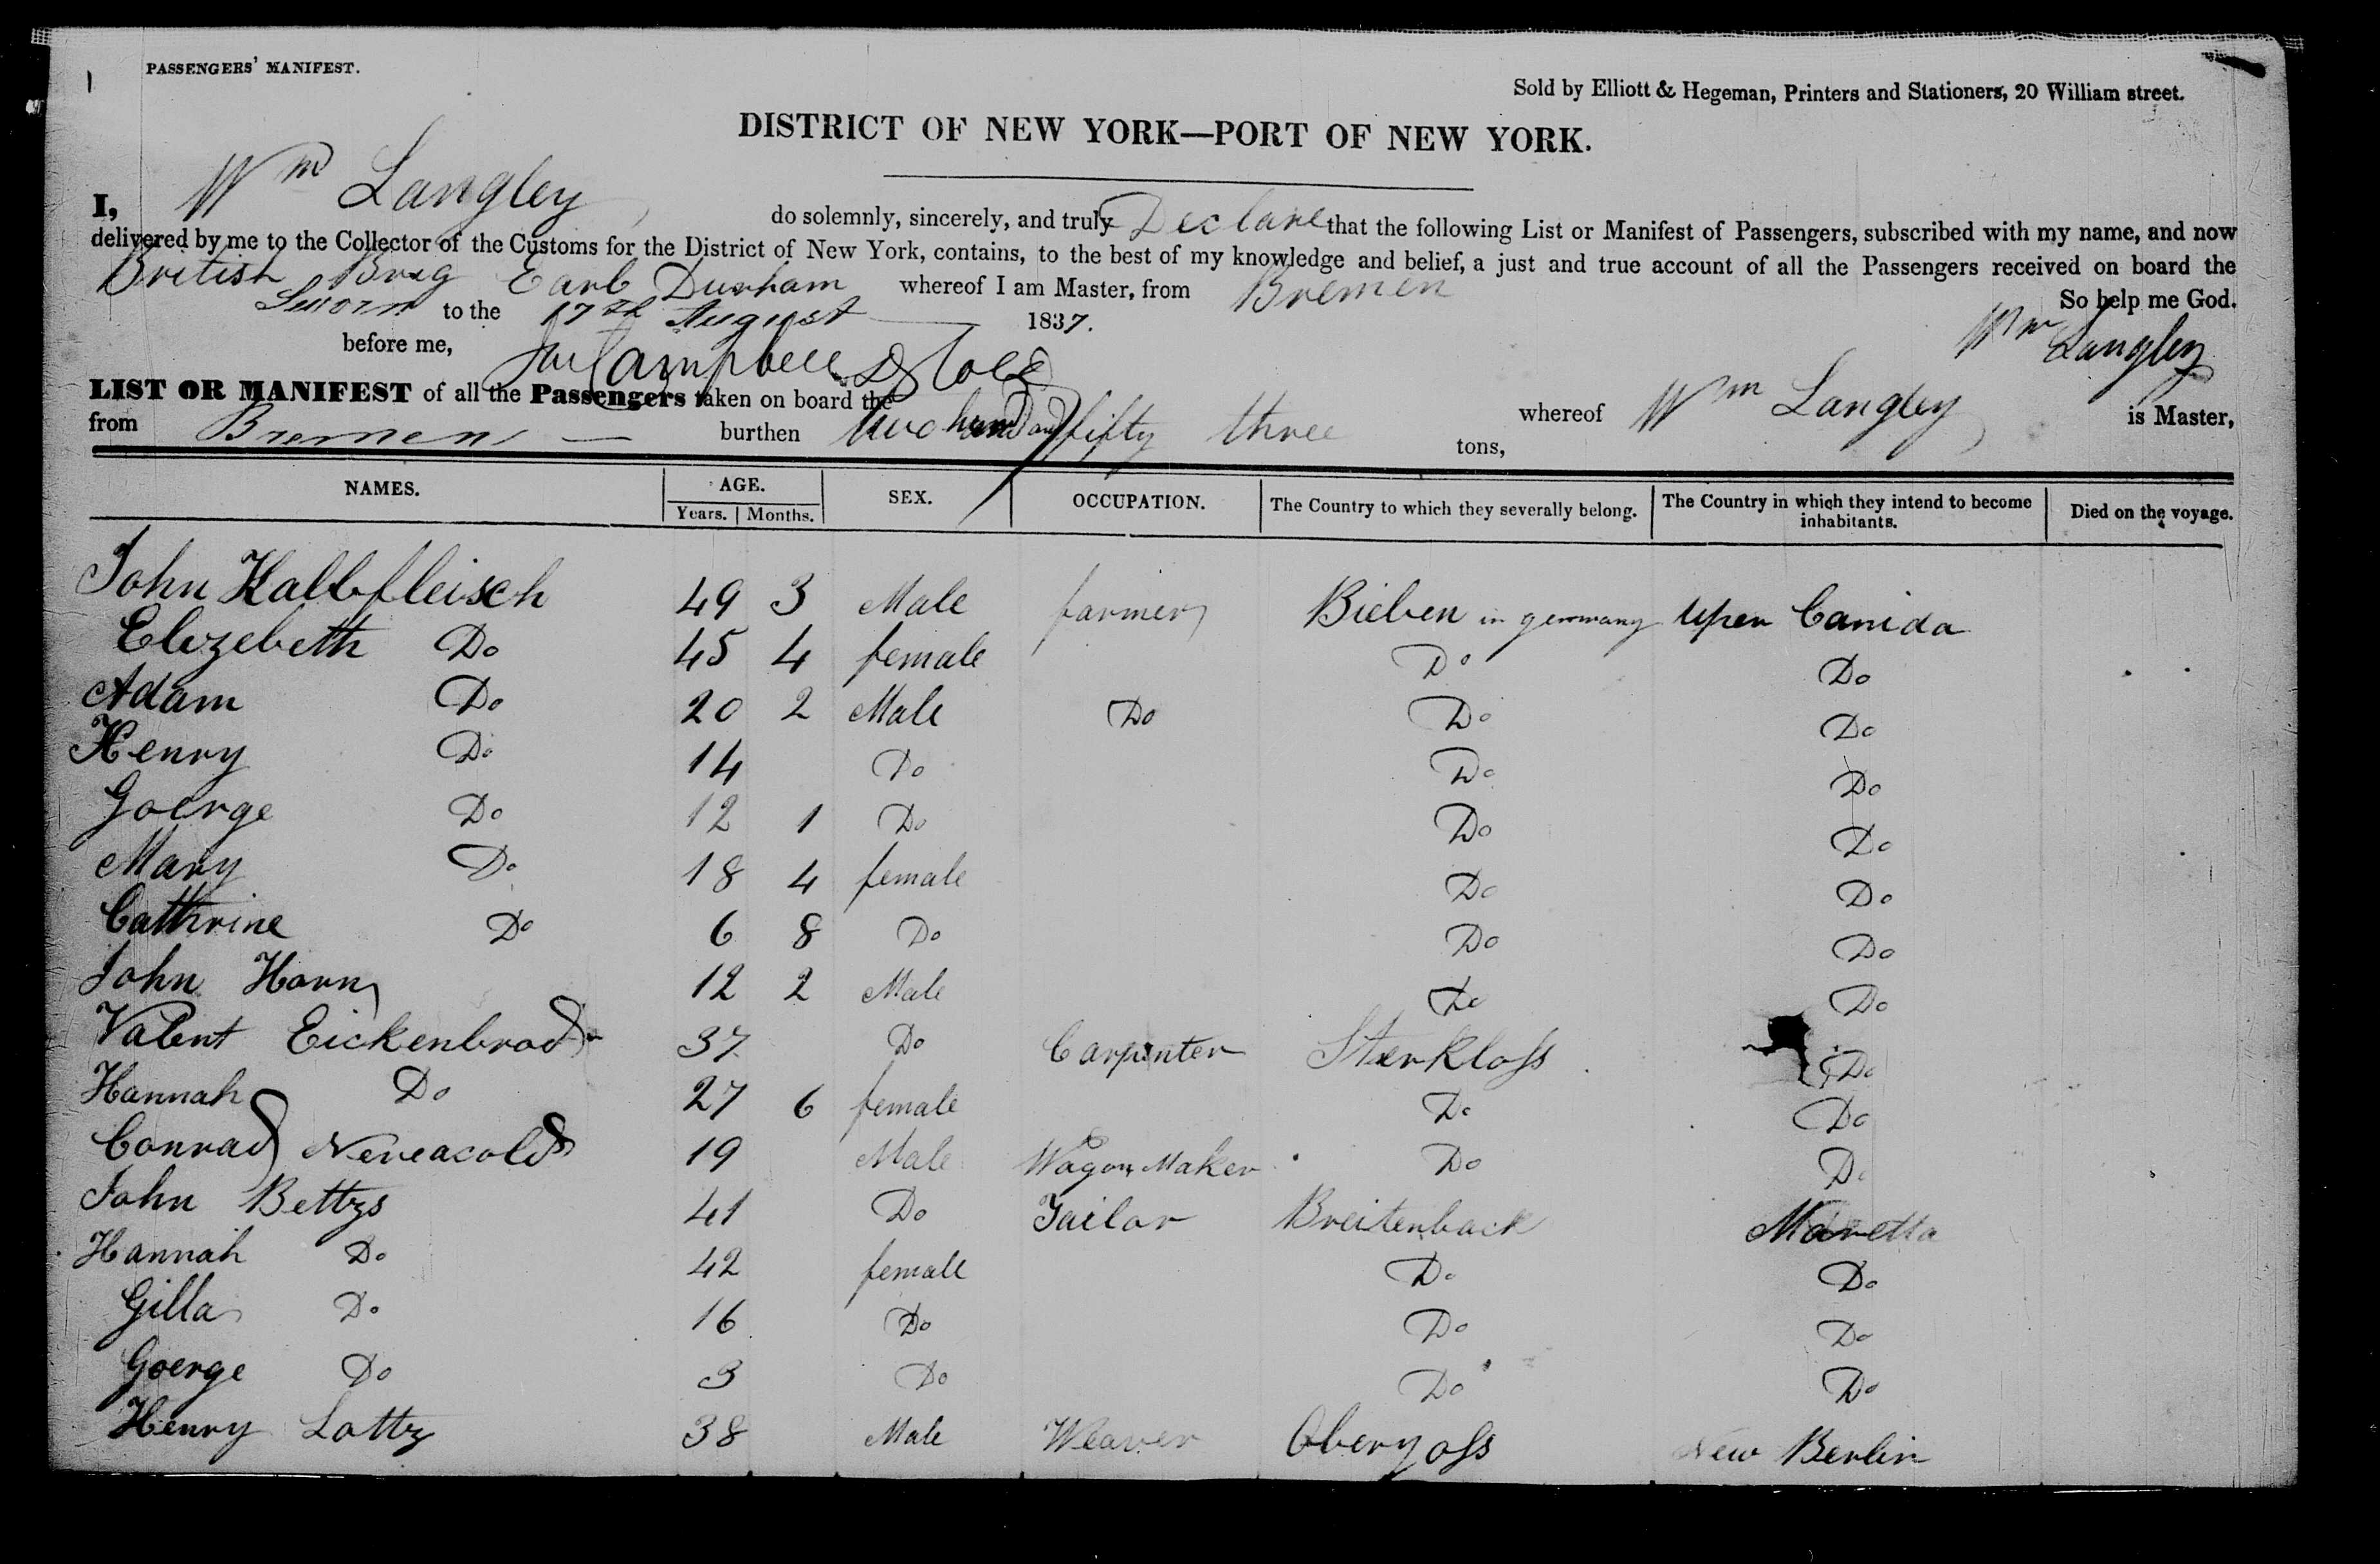 PASSENGERS' MANIFEST.
Sold by Elliott & Hegeman, Printers and Stationers, 20 William street.
DISTRICT OF NEW YORK—PORT OF NEW YORK.
I, Wm Langley do solemnly, sincerely, and truly Declare that the following List or Manifest of Passengers, subscribed with my name, and now
delivered by me to the Collector of the Customs for the District of New York, contains, to the best of my knowledge and belief, a just and true account of all the Passengers received on board the
British Brig Earl Durham whereof I am Master, from Bremen So help me God.
Sworn to the 17th August 1837. Wm Langley
before me, Campbell
LIST OR MANIFEST of all the Passengers taken on board the whereof Wm Langley is Master,
from Bremen burthen two hund and fifty three tons,
NAMES. AGE. SEX. OCCUPATION. The Country to which they severally belong. The Country in which they intend to become inhabitants. Died on the voyage.
Years. Months.
John Kalbfleisch 49 3 Male farmer Bieben in germany Uper Canida
Elezebeth Do 45 4 female Do Do
Adam Do 20 2 Male Do Do Do
Henry Do 14 Do Do Do
Goerge Do 12 1 Do Do Do
Mary Do 18 4 female Do Do
Cathrine Do 6 8 Do Do Do
John Horn 12 2 Male Do Do
Valent Eickenbrod 37 Do Carpinter Sterkloss Do
Hannah Do 27 6 female Do Do
Conrad 19 Male Wagon Maker Do Do
John Bettzs 41 Do Tailor Breitenback Maretta
Hannah Do 42 female Do Do
Gilla Do 16 Do Do Do
Goerge Do 3 Do Do Do
Henry Lottz 38 Male Weaver Oberyoss New Berlin